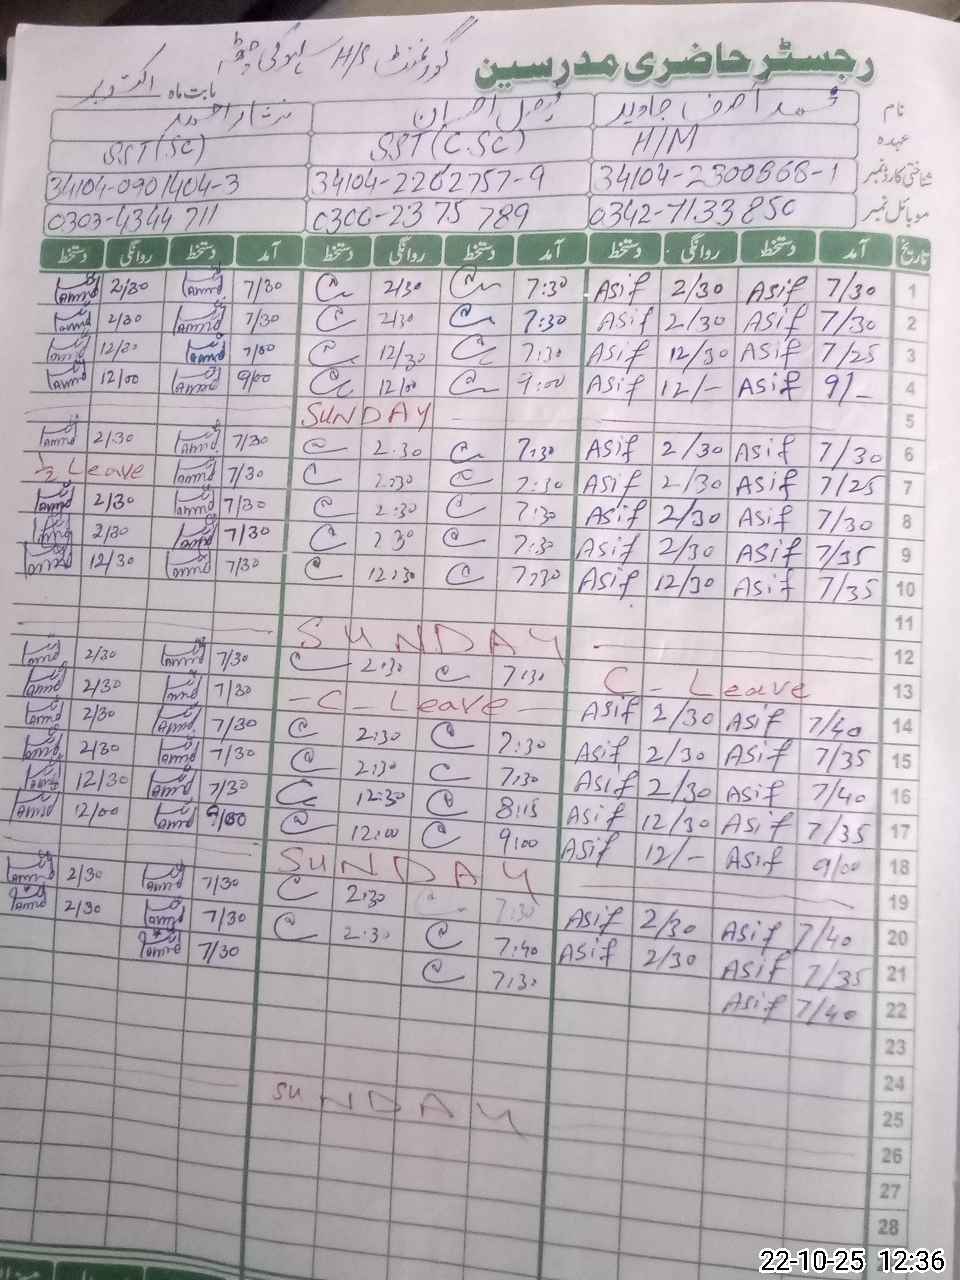 گورنمنٹ H/S ساہوکی چٹھہ
رجسٹر حاضری مدرسین
بابت ماہ اکتوبر
نام محمد آصف جاوید فیصل احسان نثار احمد
عہدہ H/M SST(C.SC) SST(SC)
شناختی کارڈ نمبر 34104-2300868-1 34104-2262757-9 34104-0901404-3
موبائل نمبر 0342-7133850 0300-2375789 0303-4344711
تاریخ آمد دستخط روانگی دستخط آمد دستخط روانگی دستخط آمد دستخط روانگی دستخط
1 7/30 Asif 2/30 Asif 7:30 2/30 7/30 2/30
2 7/30 Asif 2/30 Asif 7:30 2/30 7/30 2/30
3 7/25 Asif 12/30 Asif 7:30 12/30 12/30
4 9/- Asif 12/- Asif 9:00 12/00 9/00 12/00
5 SUNDAY
6 7/30 Asif 2/30 Asif 7:30 2:30 7/30 2/30
7 7/25 Asif 2/30 Asif 7:30 2:30 7/30 ½ Leave
8 7/30 Asif 2/30 Asif 7:30 2:30 7/30 2/30
9 7/35 Asif 2/30 Asif 7:30 2:30 7/30 2/30
10 7/35 Asif 12/30 Asif 7:30 12:30 7/30 12/30
11
12 SUNDAY
13 C-Leave 7:30 2:30 7/30 2/30
14 7/40 Asif 2/30 Asif -C-Leave- 7/30 2/30
15 7/35 Asif 2/30 Asif 7:30 2:30 7/30 2/30
16 7/40 Asif 2/30 Asif 7:30 2:30 7/30 2/30
17 7/35 Asif 12/30 Asif 8:15 12:30 7/30 12/30
18 9/00 Asif 12/- Asif 9:00 12:00 9/00 12/00
19 SUNDAY
20 7/40 Asif 2/30 Asif 7:30 2:30 7/30 2/30
21 7/35 Asif 2/30 Asif 7:40 2:30 7/30 2/30
22 7/40 Asif 7:30 7/30
23
24
25
SUNDAY
26
27
28
22-10-25 12:36